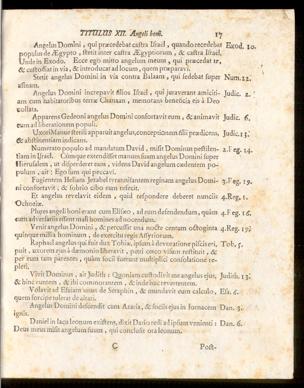 TITULUS XII. Angeli boni. 17
Angelus Domini, qui præcedebat castra Israel, quando recedebat Exod. 10.
populus de Ægypto, stetit inter castra Ægyptiorum, & castra Israel,
Unde in Exodo. Ecce ego mitto angelum meum, qui præcedat te,
& custodiat in via, & introducat ad locum, quem præparavi.
Stetit angelus Domini in via contra Balaam, qui sedebat super Num. 22.
asinam.
Angelus Domini increpavit filios Israel, qui juraverant amiciti- Judic. 2.
am cum habitatoribus terræ Chanaan, memorans beneficia eis à Deo
collata.
Apparens Gedeoni angelus Domini confortavit eum, & animavit Judic. 6.
eum ad liberationem populi.
Uxori Manue sterili apparuit angelus, conceptionem filii prædicens, Judic. 13.
& abstinentiam indicans.
Numerato populo ad mandatum David, misit Dominus pestilen- 2. Reg. 14.
tiam in Israel. Cumque extendisset manum suam angelus Domini super
Hierusalem, ut disperderet eam, videns David angelum cædentem po-
pulum, ait: Ego sum qui peccavi.
Fugientem Heliam Jezabel
angelus Domi- 3. Reg. 19.
ni confortavit, & subito cibo
Et angelus revelavit eidem, quid respondere deberet nunciis 4. Reg. 1.
Ochoziæ.
Plures angeli boni erant cum Eliseo, ad eum defendendum, quàm 4. Reg. 16.
cum adversariis essent mali homines ad nocendum.
Venit angelus Domini, & percussit una nocte centum octoginta 4. Reg. 17.
quinque millia hominum, de exercitu regis Assyriorum.
Raphael angelus qui fuit dux Tobiæ, ipsum à devoratione piscis eri, Tob. 5.
puit, uxorem ejus à dæmonio liberavit, patri cæco visum restituit, &
per eum tam parentes, quàm socii fuerunt multiplici consolatione re-
pleti.
Vivit Dominus, ait Judith: Quoniam custodivit me angelus ejus, Judith. 13.
& hinc euntem, & ibi commorantem, & inde huc revertentem.
Volavit ad Esaiam unus de Seraphin, & mundavit eum calculo, Esa. 6.
quem forcipe tulerat de altari.
Angelus Domini descendit cum Azaria, & sociis ejus in fornacem Dan. 3.
ignis.
Daniel in lacu leonum existens, dixit Dario regi ad ipsum venienti: Dan. 6.
Deus meus misit angelum suum, qui conclusit ora leonum.
C Post-